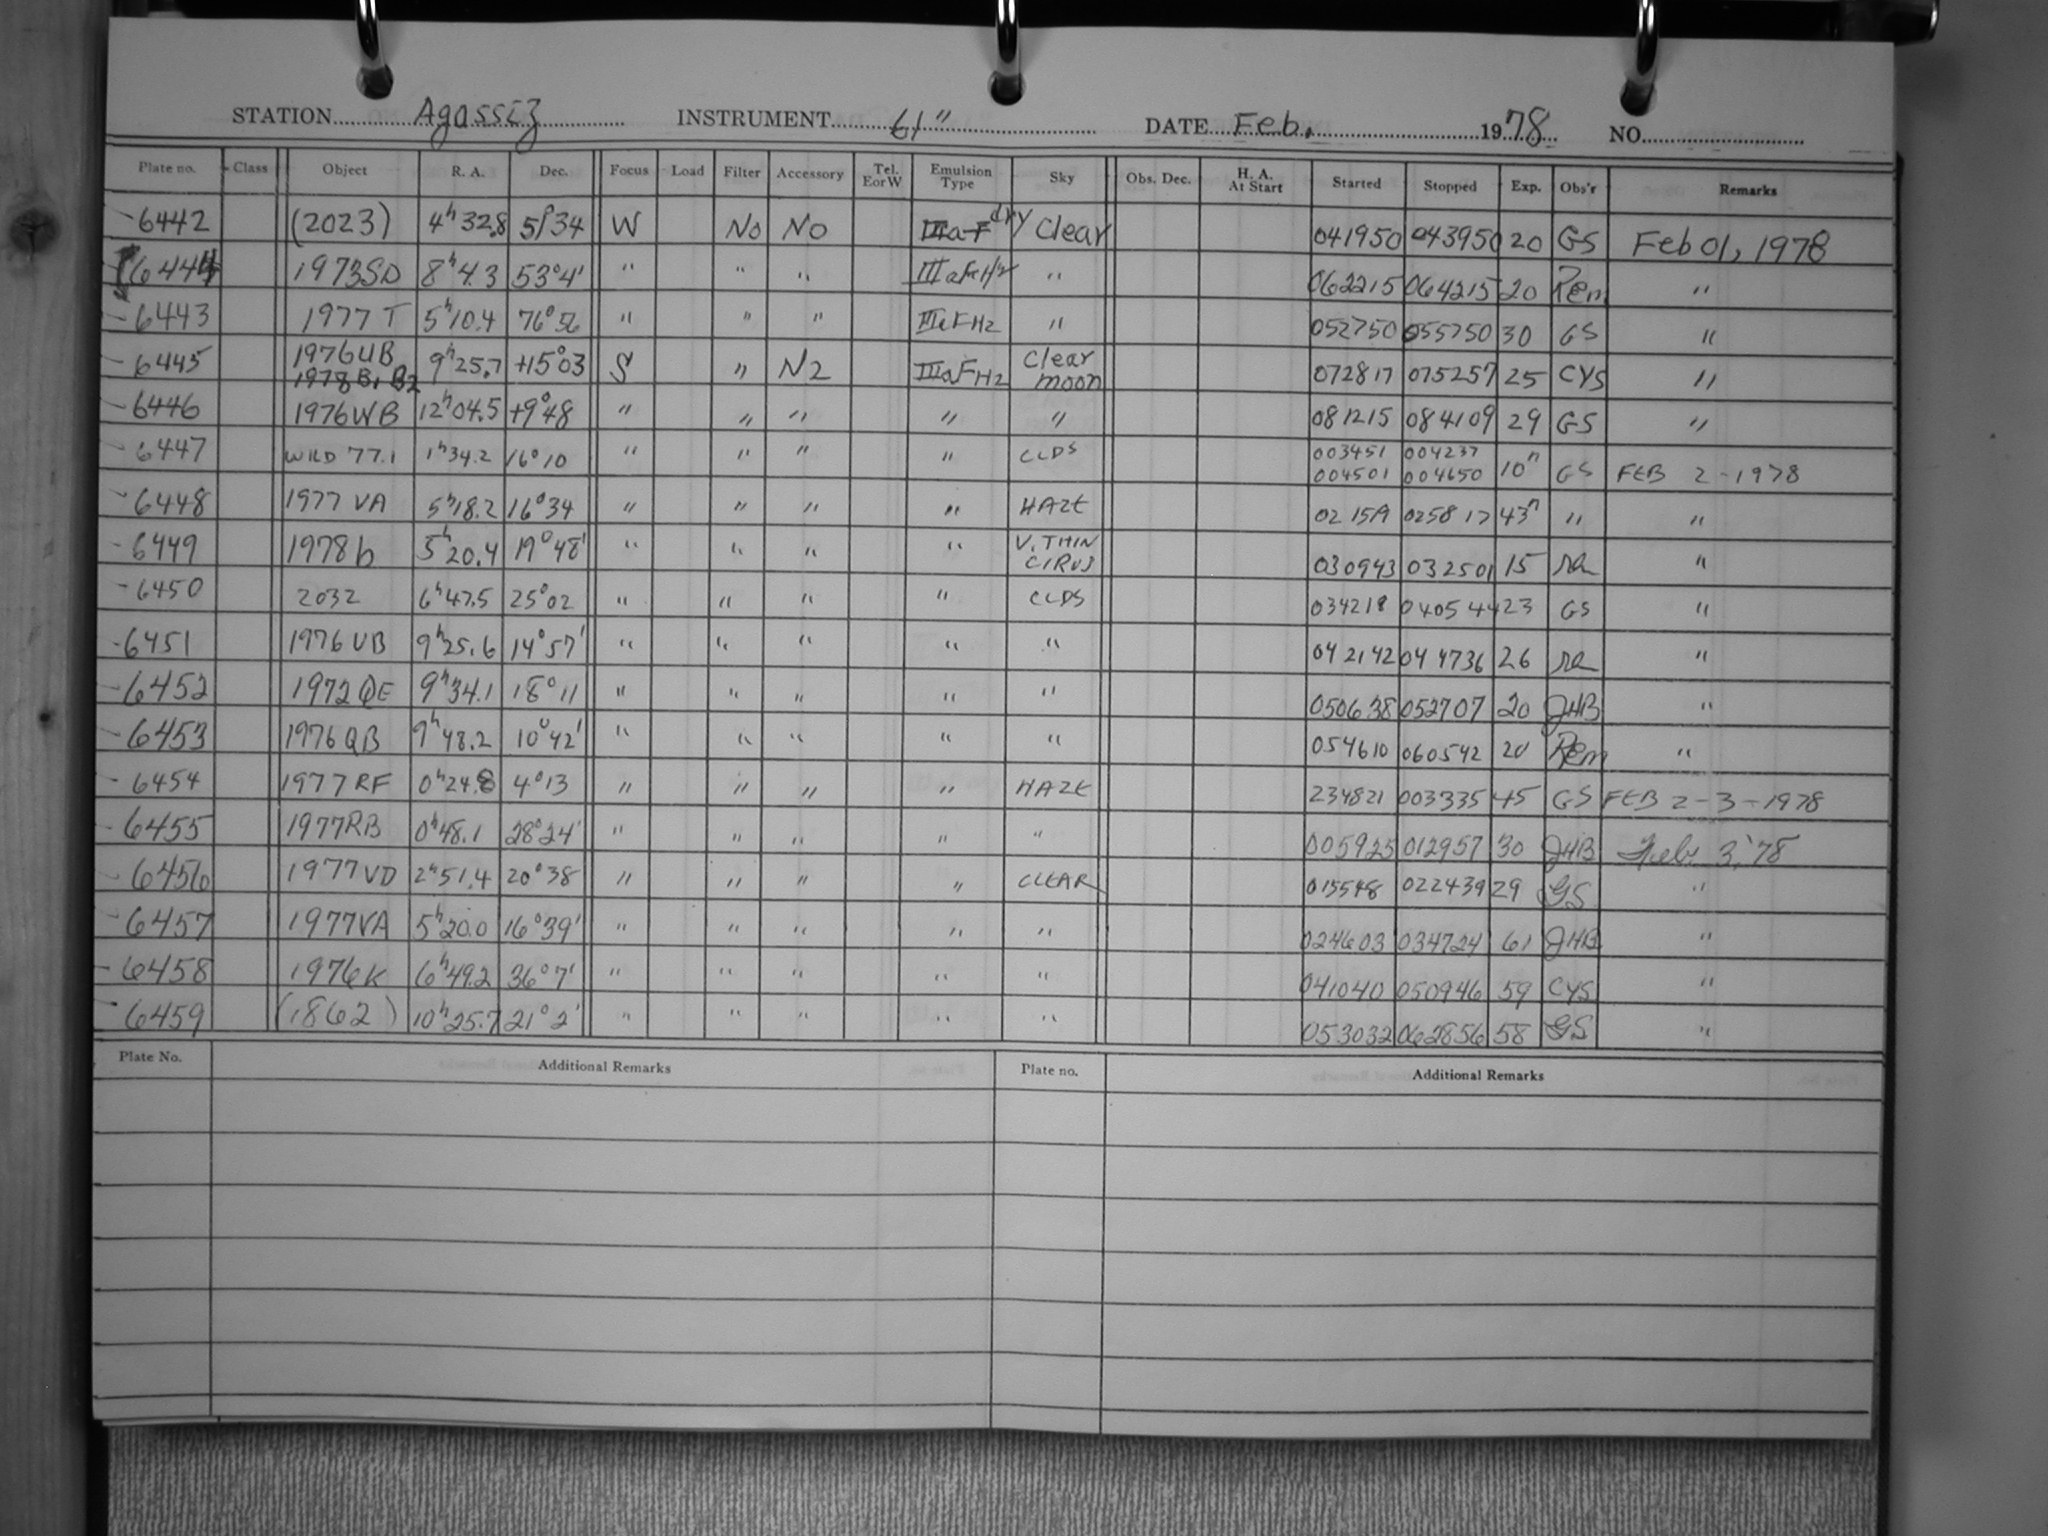 STATION Agassiz INSTRUMENT 61" DATE Feb. 1978 NO.
Plate no. Class Object R. A. Dec. Focus Load Filter Accessory Tel. E or W Emulsion Type Sky Obs. Dec. H. A. At Start Started Stopped Exp. Obs'r Remarks
6442 (2023) 4h 32.8 5° 34 W No No IIIa-F dry Clear 041950 043950 20 GS Feb 01, 1978
6444 1973SD 8h 4.3 53° 4' " " " IIIaFH2 " 062215 064215 20 Rem "
6443 1977 T 5h 10.4 76° 56 " " " IIIaFH2 " 052750 055750 30 GS "
6445 1976UB 1978 B1 B2 9h 25.7 +15° 03 S " N2 IIIaFH2 Clear moon 072817 075257 25 CYS "
6446 1976WB 12h 04.5 +9° 48 " " " " " 081215 084109 29 GS "
6447 WILD 77.1 1h 34.2 16° 10 " " " " CLDS 003451 004237 004501 004650 10m GS FEB 2 - 1978
6448 1977 VA 5h 18.2 16° 34 " " " " HAZE 021519 025817 43m " "
6449 1978 b 5h 20.4 19° 48' " " " " V. THIN CIRUS 030943 032501 15 ra "
6450 2032 6h 47.5 25° 02 " " " " CLDS 034218 040544 23 GS "
6451 1976 UB 9h 25.6 14° 57' " " " " " 042142 044736 26 ra "
6452 1972 QE 9h 34.1 18° 11 " " " " " 050638 052707 20 JHB "
6453 1976 QB 9h 48.2 10° 42' " " " " " 054610 060542 20 Rem "
6454 1977 RF 0h 24.8 4° 13 " " " " HAZE 234821 003335 45 GS FEB 2-3-1978
6455 1977RB 0h 48.1 28° 24' " " " " " 005925 012957 30 JHB Feb. 3, '78
6456 1977 VD 2h 51.4 20° 38 " " " " CLEAR 015548 022439 29 GS "
6457 1977VA 5h 20.0 16° 39' " " " " " 024603 034724 61 JHB "
6458 1976K 6h 49.2 36° 7' " " " " " 041040 050946 59 CYS "
6459 (1862) 10h 25.7 21° 2' " " " " " 053032 062856 58 GS "
Plate No. Additional Remarks Plate no. Additional Remarks